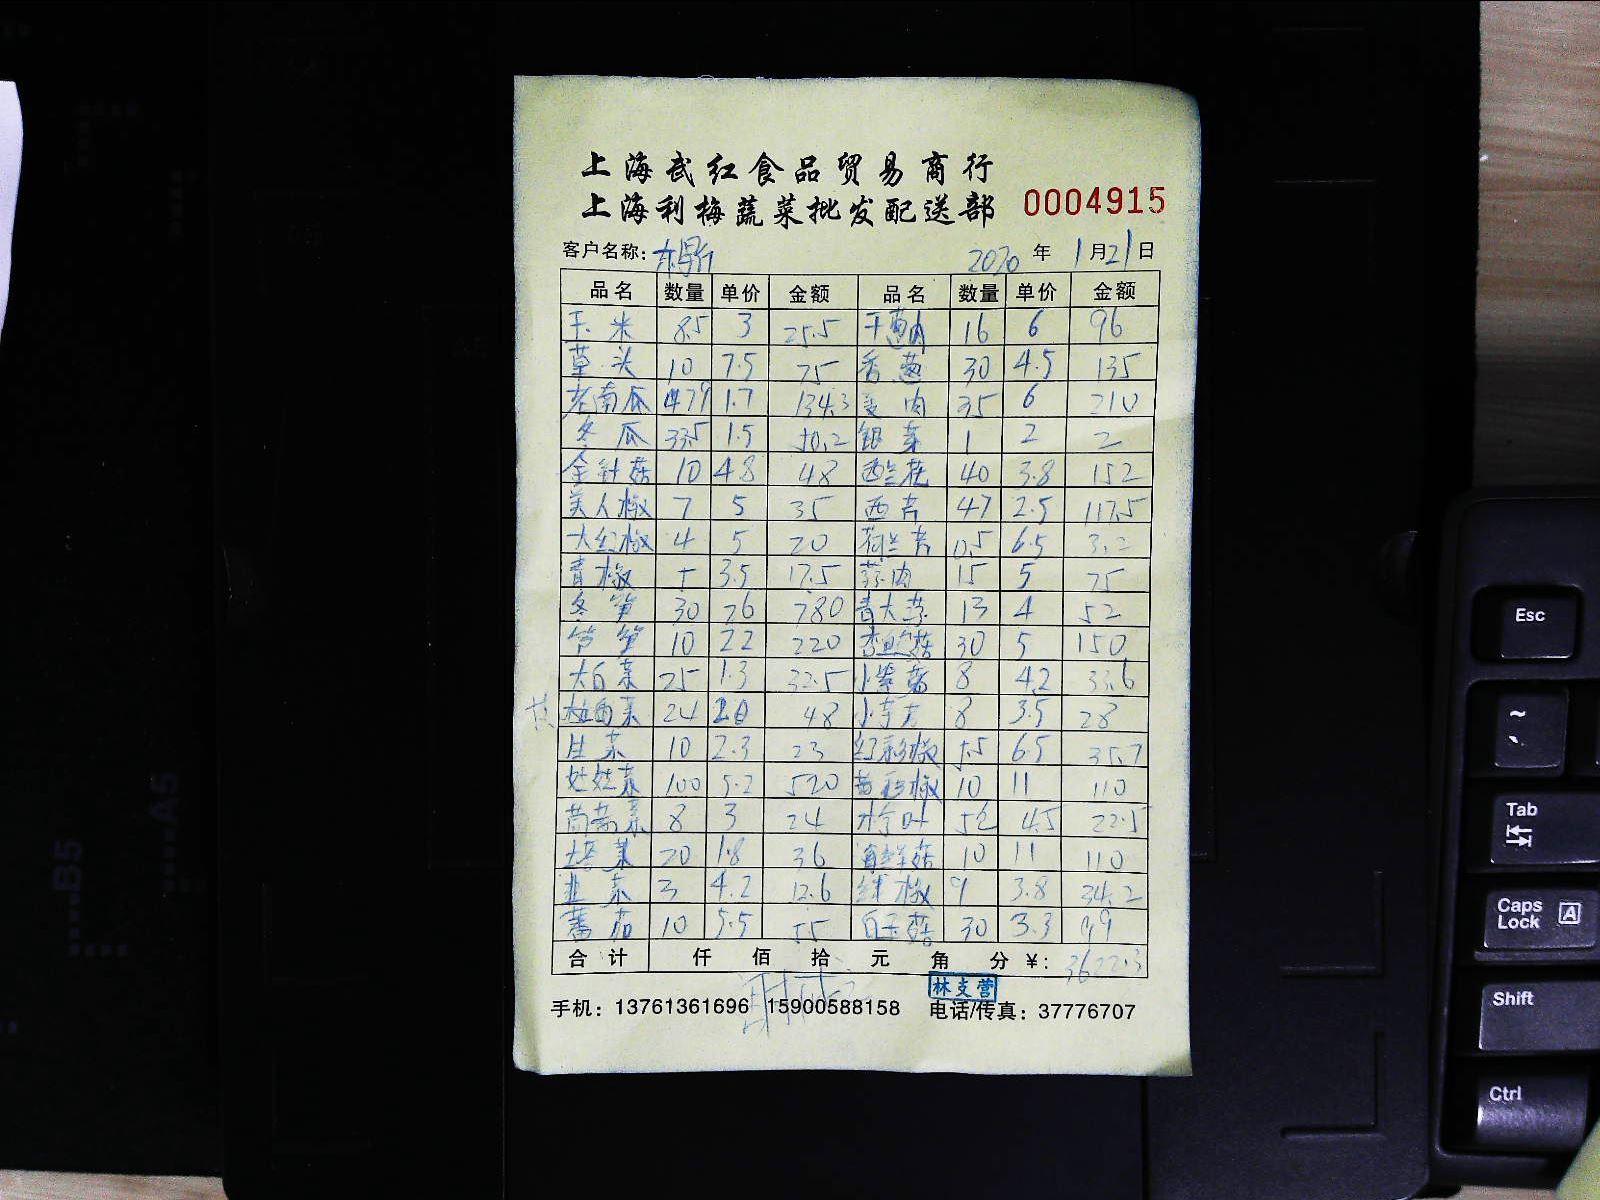 上海武红食品贸易商行
上海利梅蔬菜批发配送部 0004915
客户名称: 2020 年 1 月 21 日
品名 数量 单价 金额 品名 数量 单价 金额
玉米 8.5 3 25.5 干葱肉 16 6 96
草头 10 7.5 75 香葱 30 4.5 135
老南瓜 79 1.7 134.3 姜肉 35 6 210
冬瓜 33.5 1.5 50.2 银芽 1 2 2
金针菇 10 4.8 48 西兰花 40 3.8 152
美人椒 7 5 35 西芹 47 2.5 117.5
大红椒 4 5 20 荷兰芹 0.5 6.5 3.2
青椒 5 3.5 17.5 蒜肉 15 5 75
冬笋 30 26 780 青大蒜 13 4 52
竹笋 10 22 220 杏鲍菇 30 5 150
大白菜 25 1.3 32.5 小 菇 8 4.2 33.6
菜 24 2.0 48 小芋艿 8 3.5 28
生菜 10 2.3 23 红彩椒 5.5 6.5 35.7
娃娃菜 100 5.2 520 黄彩椒 10 11 110
茼蒿菜 8 3 24 叶 5 4.5 22.5
塔菜 20 1.8 36 海鲜菇 10 11 110
韭菜 3 4.2 12.6 尖椒 9 3.8 34.2
蕃茄 10 5.5 55 白玉菇 30 3.3 99
合计 仟 佰 拾 元 角 分 ¥: 3622.3
林支营
手机: 13761361696 15900588158 电话/传真: 37776707
B5
A5
Esc
~
Tab
Caps Lock A
Shift
Ctrl